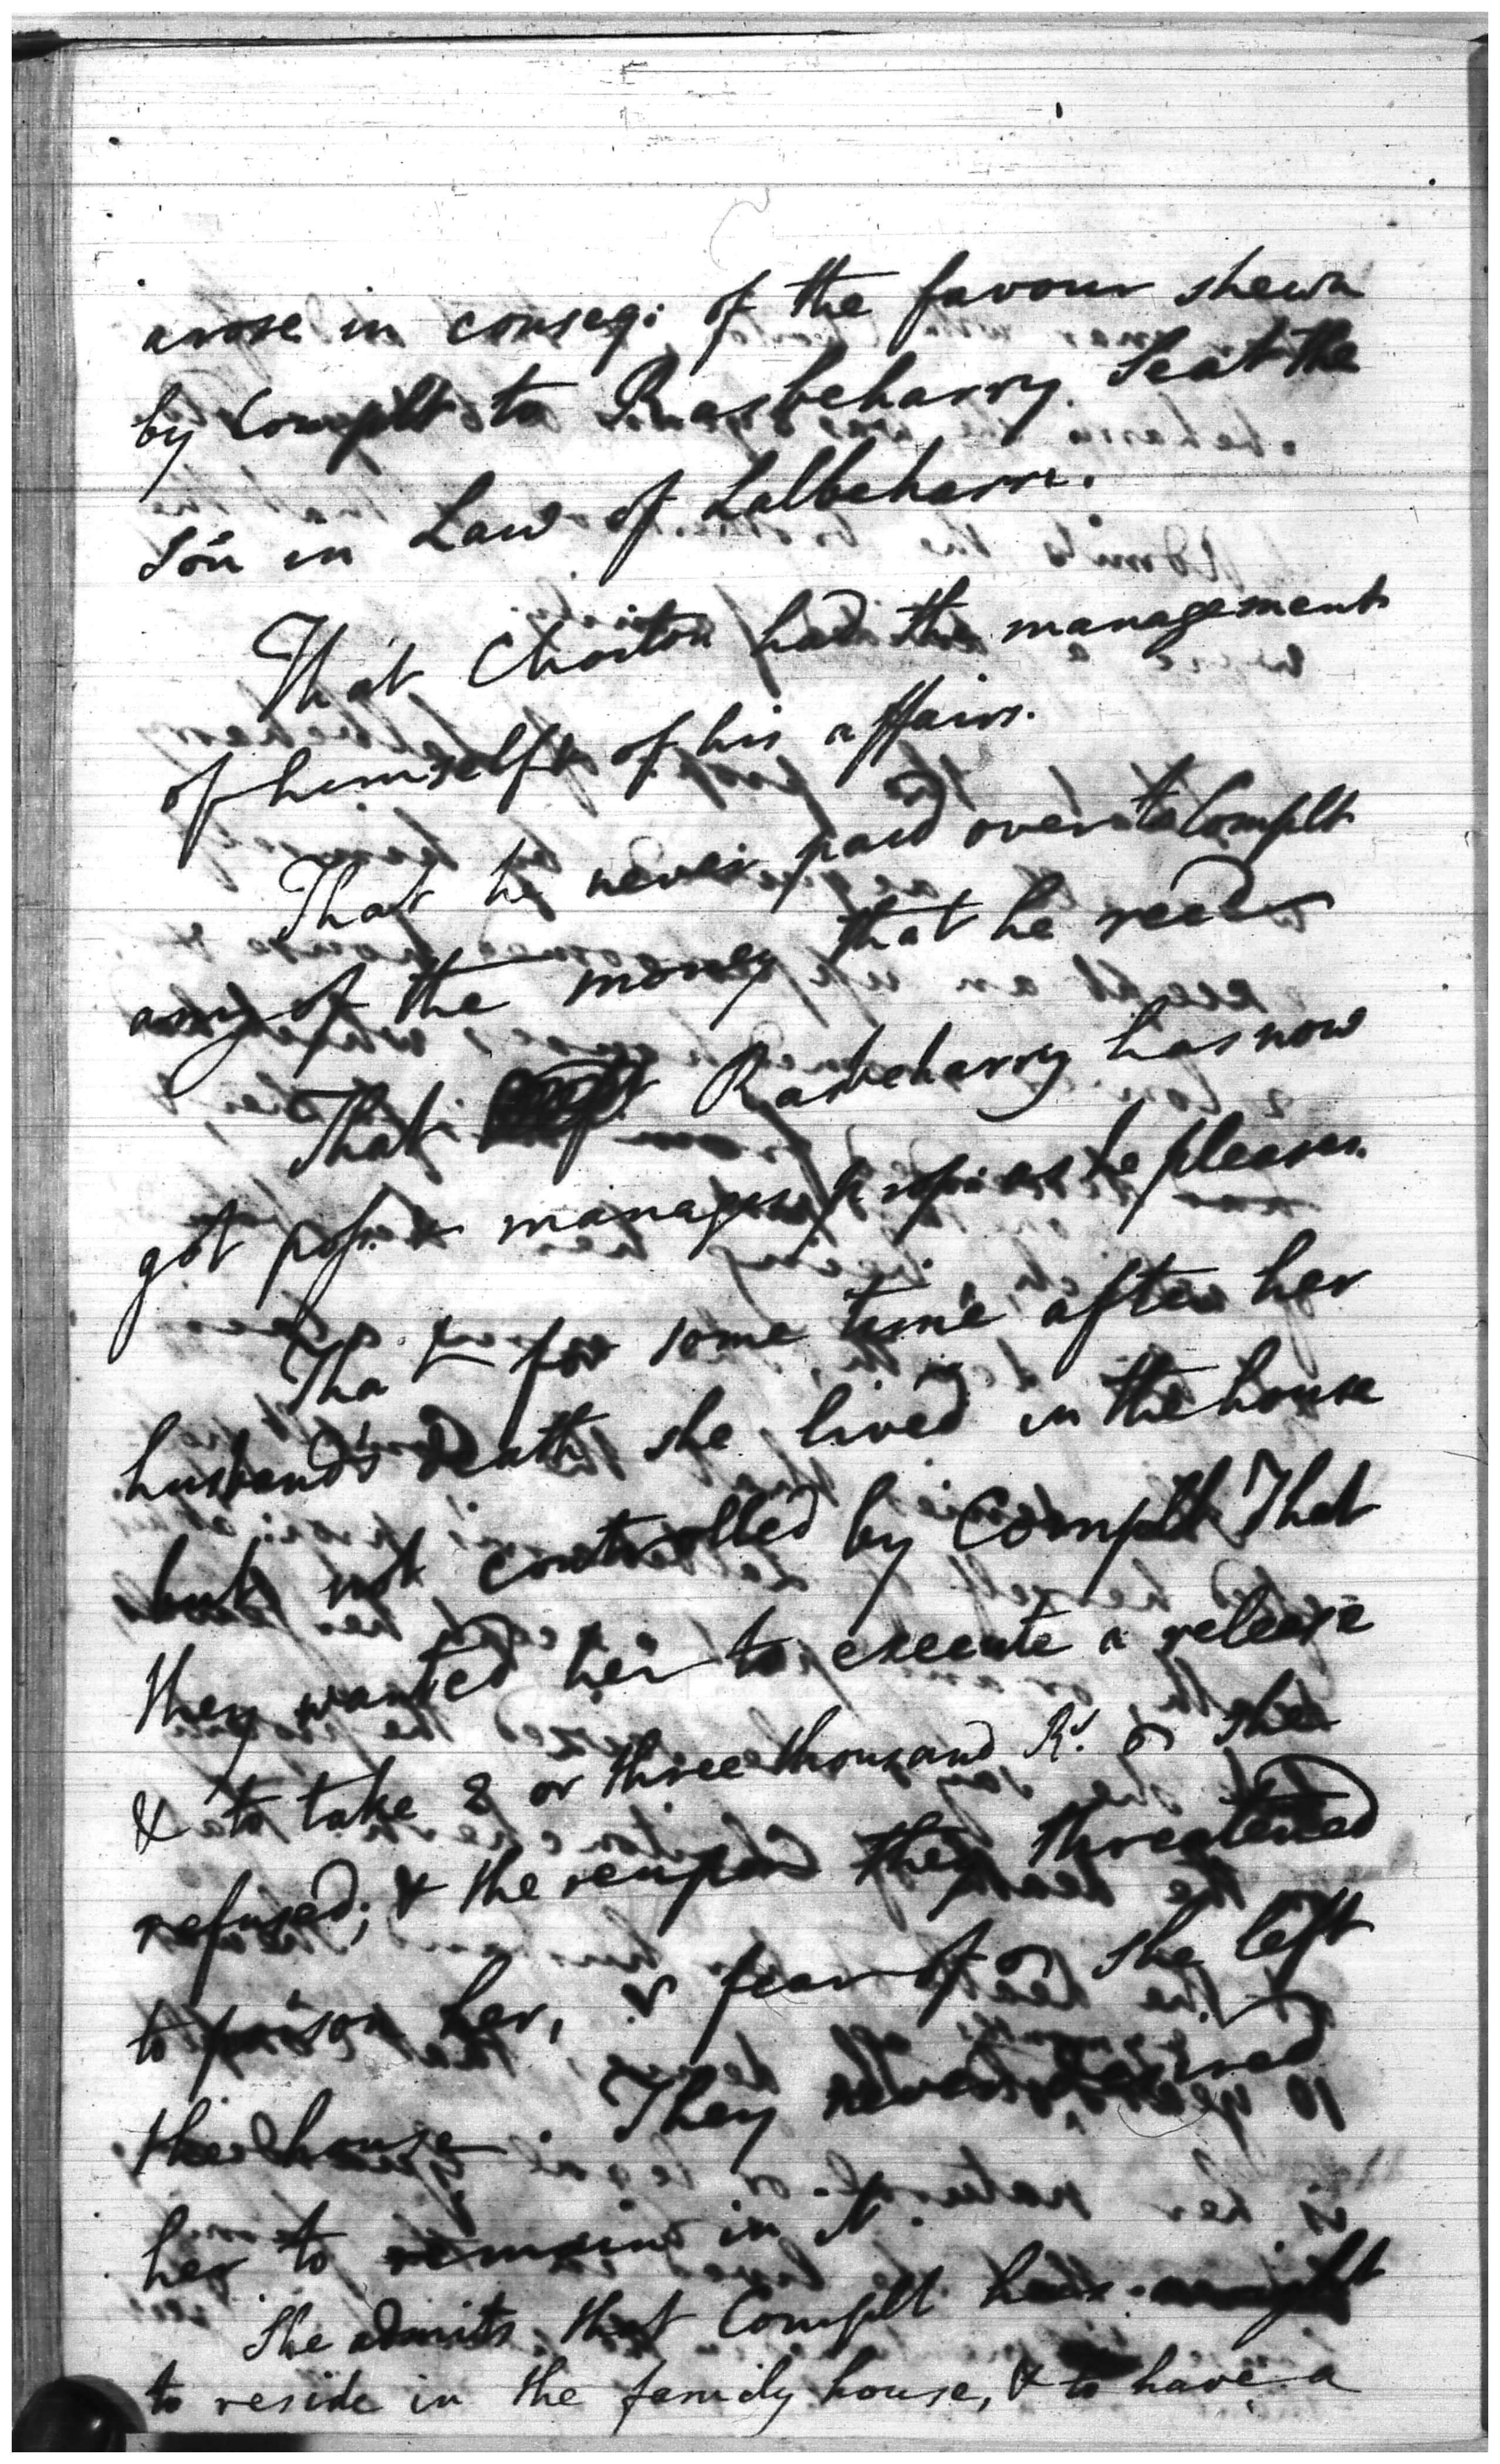 arose in conseq: of the favour shewn
by Complt to Rasbeharry Seat the
Son in Law of Lalbeharri.
That Choiton had the management
of himself & of his affairs.
That he never paid over to Complt
any of the money that he recd
That Rasbeharry has now
got poss: & manages as he pleases.
That for some time after her
husband's death she lived in the house
but not controlled by Complt That
they wanted her to execute a release
& to take 2 or three thousand Rs. she
refused; & they threatened
to poison her, & fear of she left
the house. They never desired
her to remain in it.
She admits that Complt has
to reside in the family house, & to have a